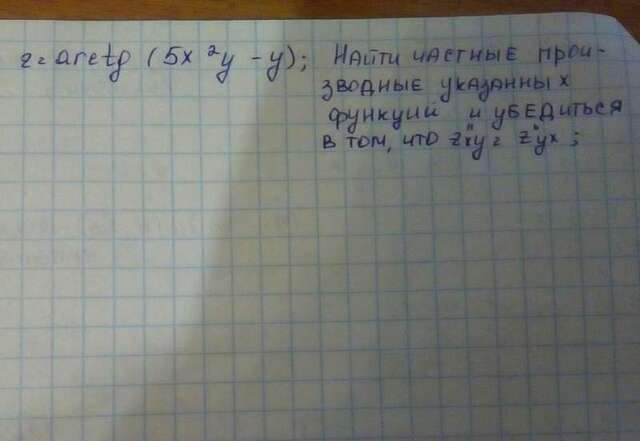 z = arctg (5x²y - y); Найти частные прои-
зводные указанных
функций и убедиться
в том, что z"xy = z"yx;